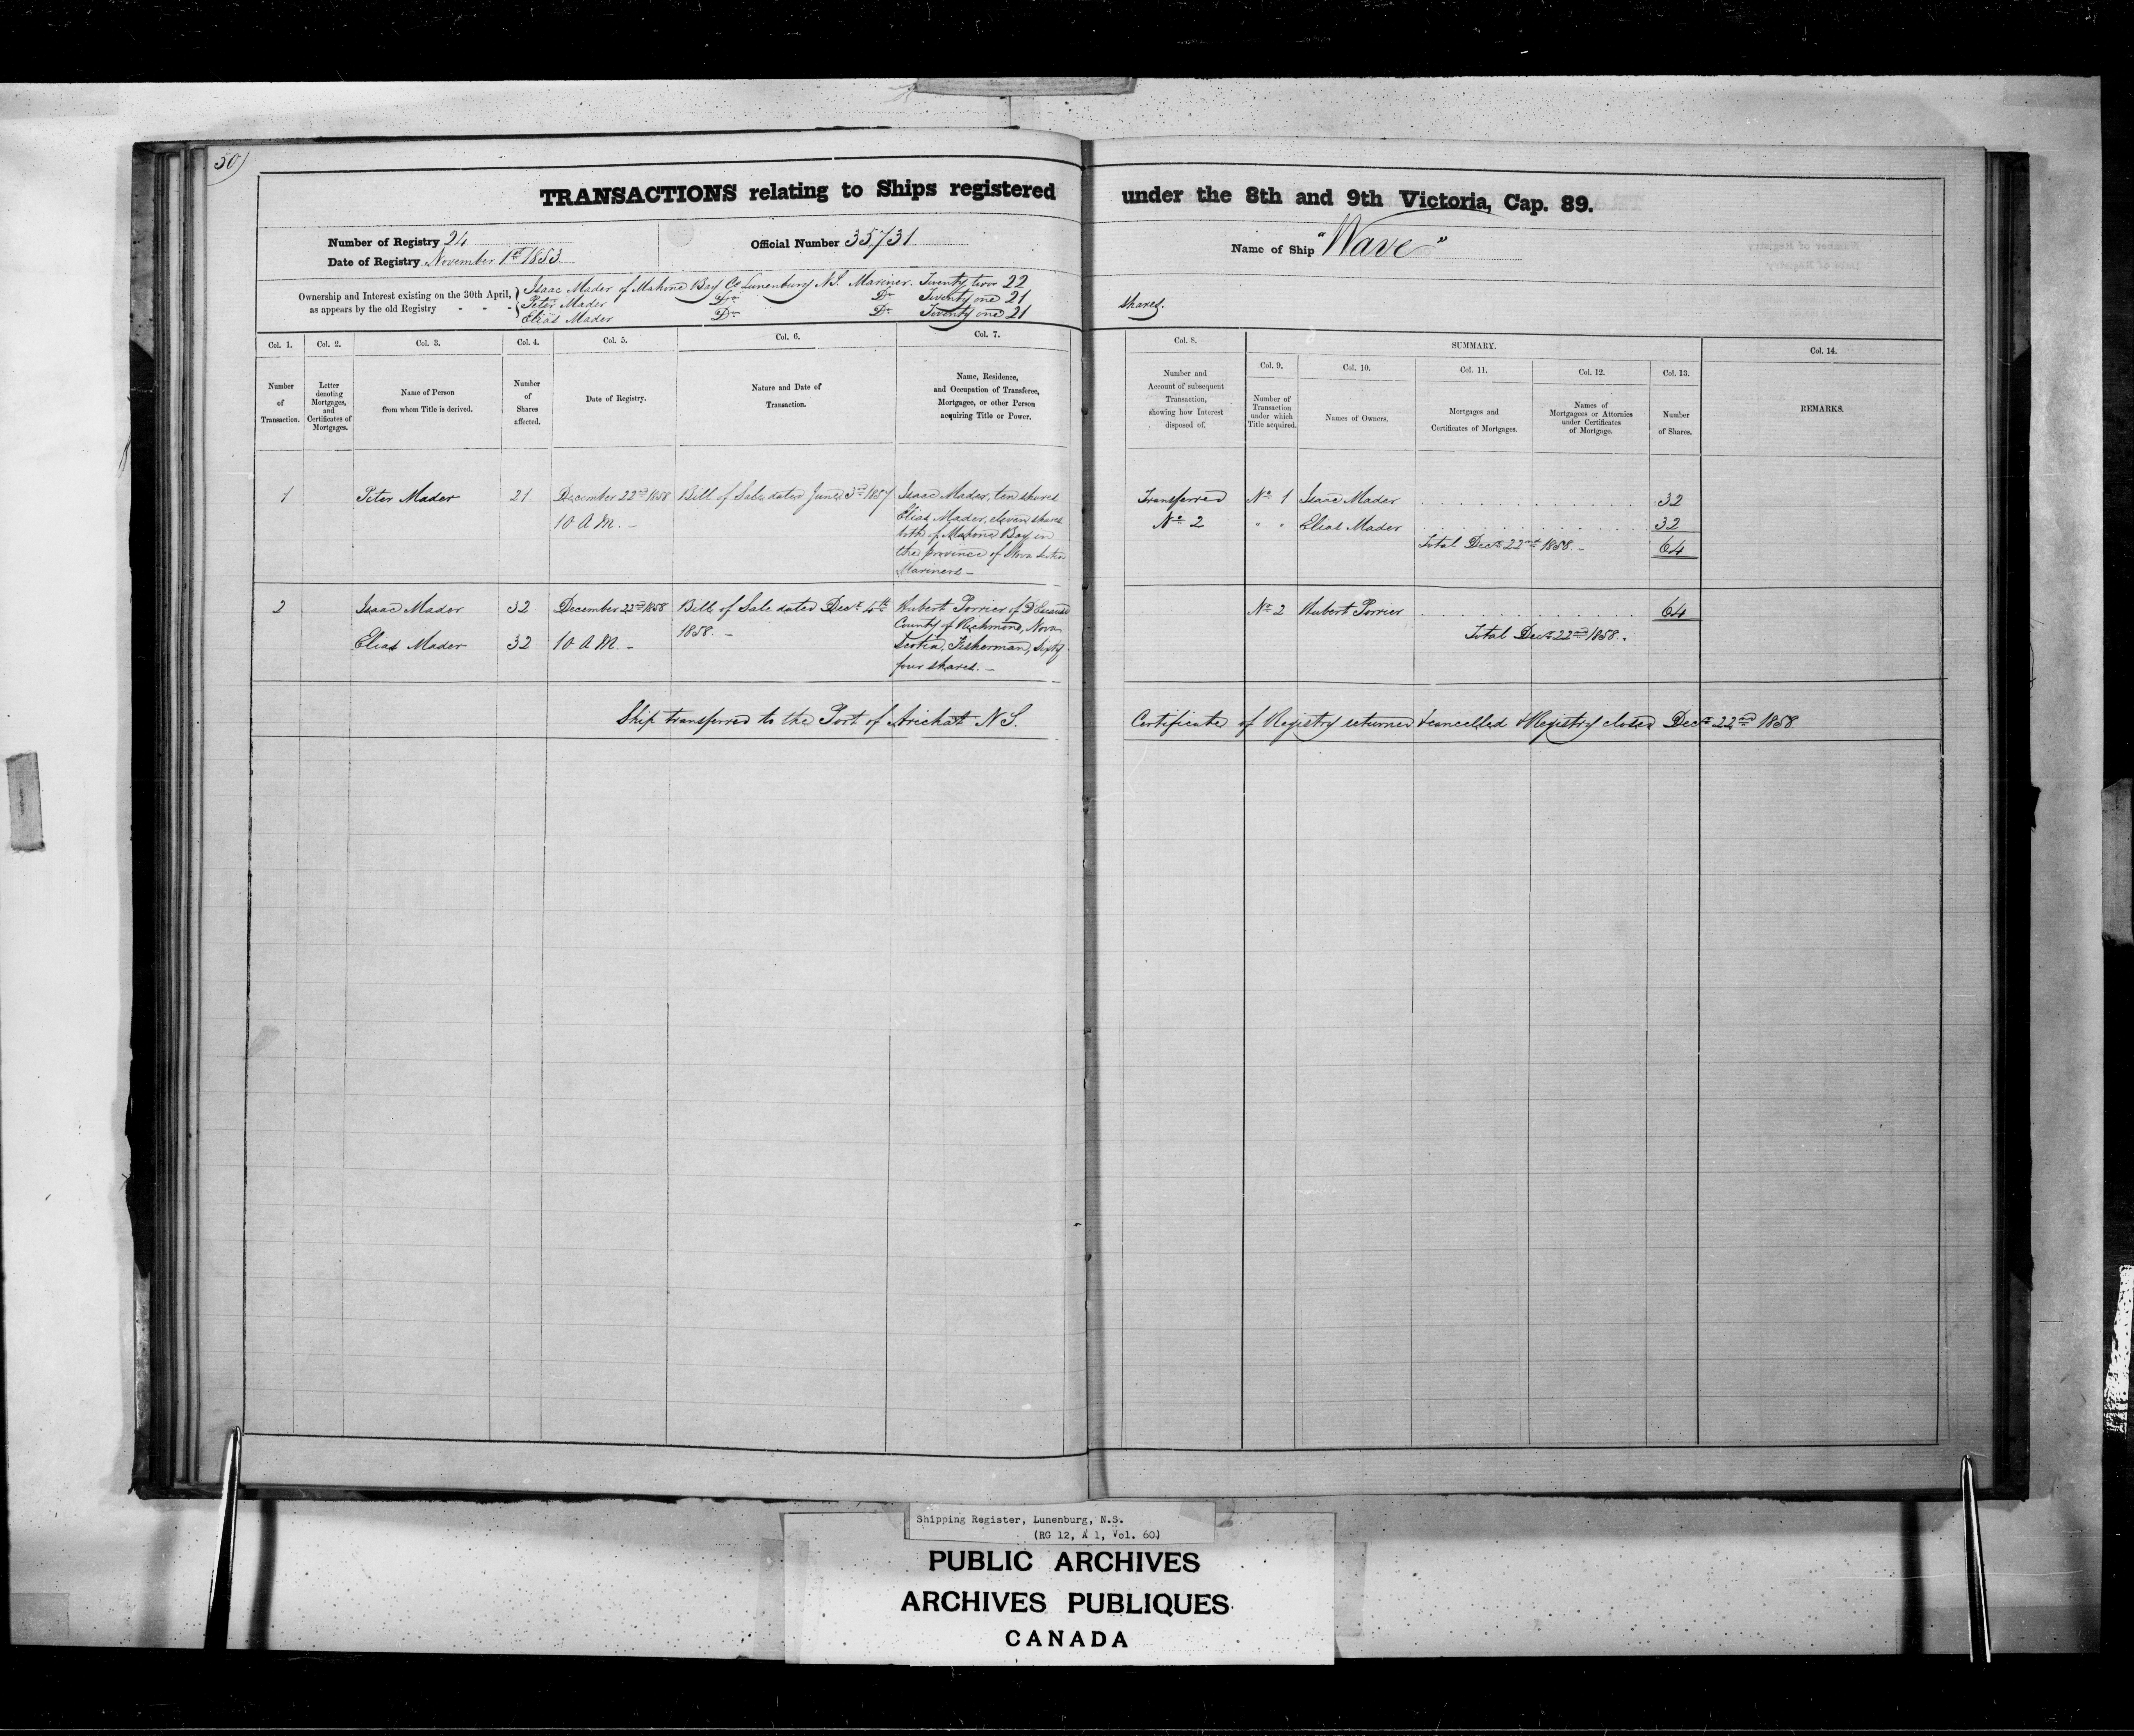 50)
TRANSACTIONS relating to Ships registered under the 8th and 9th Victoria, Cap. 89.
Number of Registry 24
Official Number 35731
Name of Ship "Wave"
Date of Registry November 1st 1853
Ownership and Interest existing on the 30th April,
as appears by the old Registry - - -
Isaac Mader of Mahone Bay Co Lunenburg N.S. Mariner. Twenty two 22
Peter Mader Do Do Twenty one 21 shares.
Elias Mader Do Do Twenty one 21
Col. 1.
Number
of
Transaction.
Col. 2.
Letter
denoting
Mortgages,
and
Certificates of
Mortgages.
Col. 3.
Name of Person
from whom Title is derived.
Col. 4.
Number
of
Shares
affected.
Col. 5.
Date of Registry.
Col. 6.
Nature and Date of
Transaction.
Col. 7.
Name, Residence,
and Occupation of Transferee,
Mortgagee, or other Person
acquiring Title or Power.
Col. 8.
Number and
Account of subsequent
Transaction,
showing how Interest
disposed of.
SUMMARY.
Col. 9.
Number of
Transaction
under which
Title acquired.
Col. 10.
Names of Owners.
Col. 11.
Mortgages and
Certificates of Mortgages.
Col. 12.
Names of
Mortgagees or Attornies
under Certificates
of Mortgage.
Col. 13.
Number
of Shares.
Col. 14.
REMARKS.
1
Peter Mader
21
December 22nd 1858
10 A M. -
Bill of Sale dated June 3rd 1857
Isaac Mader, ten shares
Elias Mader, eleven shares
both of Mahone Bay in
the province of Nova Scotia
Mariners -
Transferred
No 2
No 1 Isaac Mader 32
" " Elias Mader 32
Total Decr 22nd 1858. - 64
2
Isaac Mader 32
Elias Mader 32
December 22nd 1858
10 A M. -
Bill of Sale dated Decr 4th
1858. -
Hubert Porrier of D'Escouse
County of Richmond, Nova
Scotia, Fisherman, Sixty
four shares. -
No 2 Hubert Porrier 64
Total Decr 22nd 1858.
Ship transferred to the Port of Arichat N S. Certificate of Registry returned & cancelled & Registry closed Decr 22nd 1858.
Shipping Register, Lunenburg, N.S.
(RG 12, A 1, Vol. 60)
PUBLIC ARCHIVES
ARCHIVES PUBLIQUES
CANADA